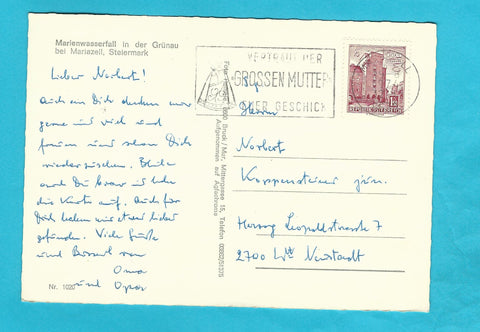 Marienwasserfall in der Grünau
bei Mariazell, Steiermark
Lieber Norbert!
Auch an Dich denken wir
gerne und viel und
freuen uns schon Dich
wiederzusehen. Bleibe
auch Du brav u. hebe
die Karte auf. Auch für
Dich haben wir etwas
gefunden. Viele Grüße
und Busserl von
Oma
und Opa
Nr. 1020
VERTRAUT DER
GROSSEN MUTTER
EUER GESCHICK
REPUBLIK ÖSTERREICH
Bruck / Mur, Mittergasse 15, Telefon
Aufgenommen auf Agfachrome
Herrn
Norbert
Koppensteiner jun.
Herzog Leopoldstrasse 7
2700 Wr. Neustadt